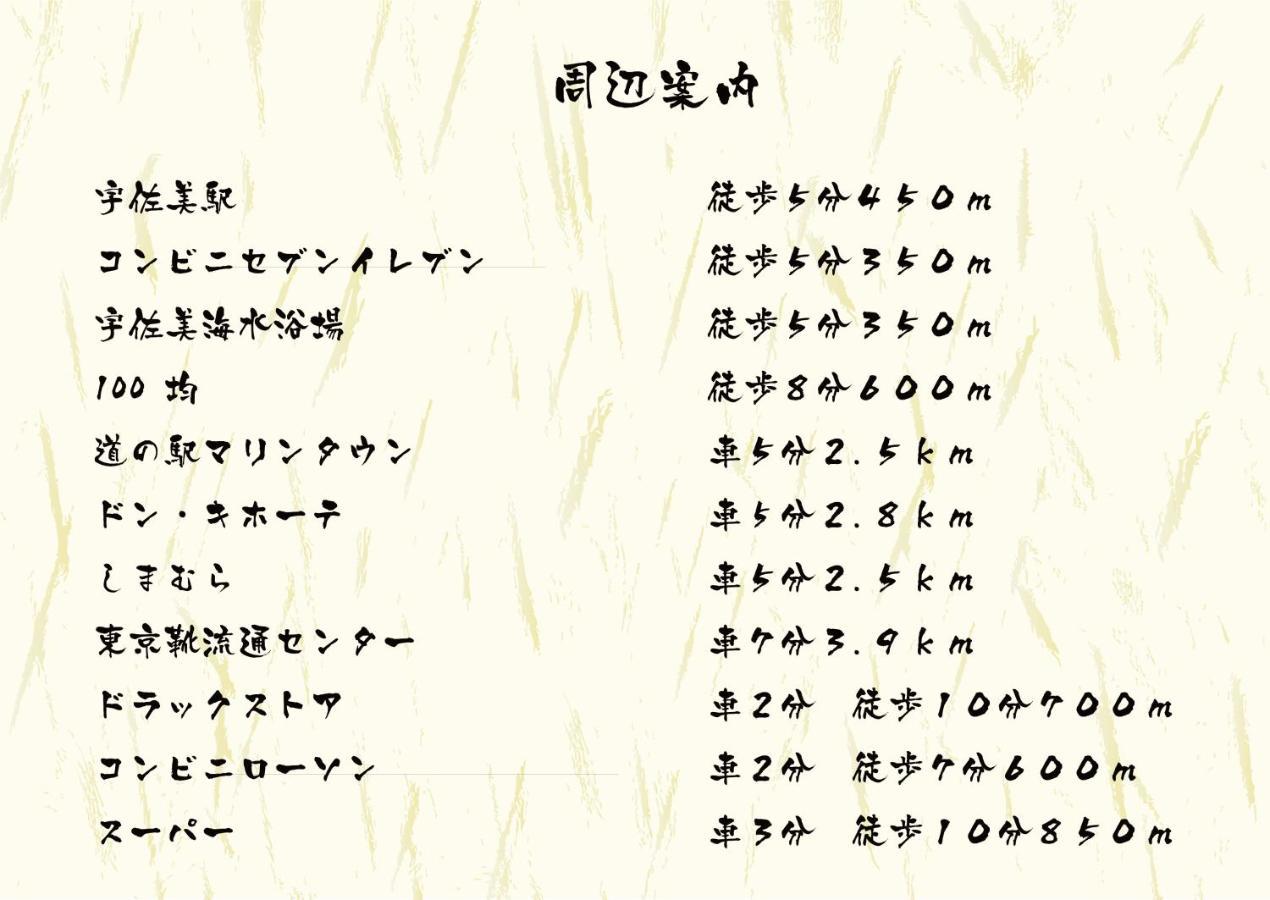 周辺案内
宇佐美駅 徒歩5分450m
コンビニセブンイレブン 徒歩5分350m
宇佐美海水浴場 徒歩5分350m
100 均 徒歩8分600m
道の駅マリンタウン 車5分2.5km
ドン・キホーテ 車5分2.8km
しまむら 車5分2.5km
東京靴流通センター 車7分3.9km
ドラックストア 車2分 徒歩10分700m
コンビニローソン 車2分 徒歩7分600m
スーパー 車3分 徒歩10分850m